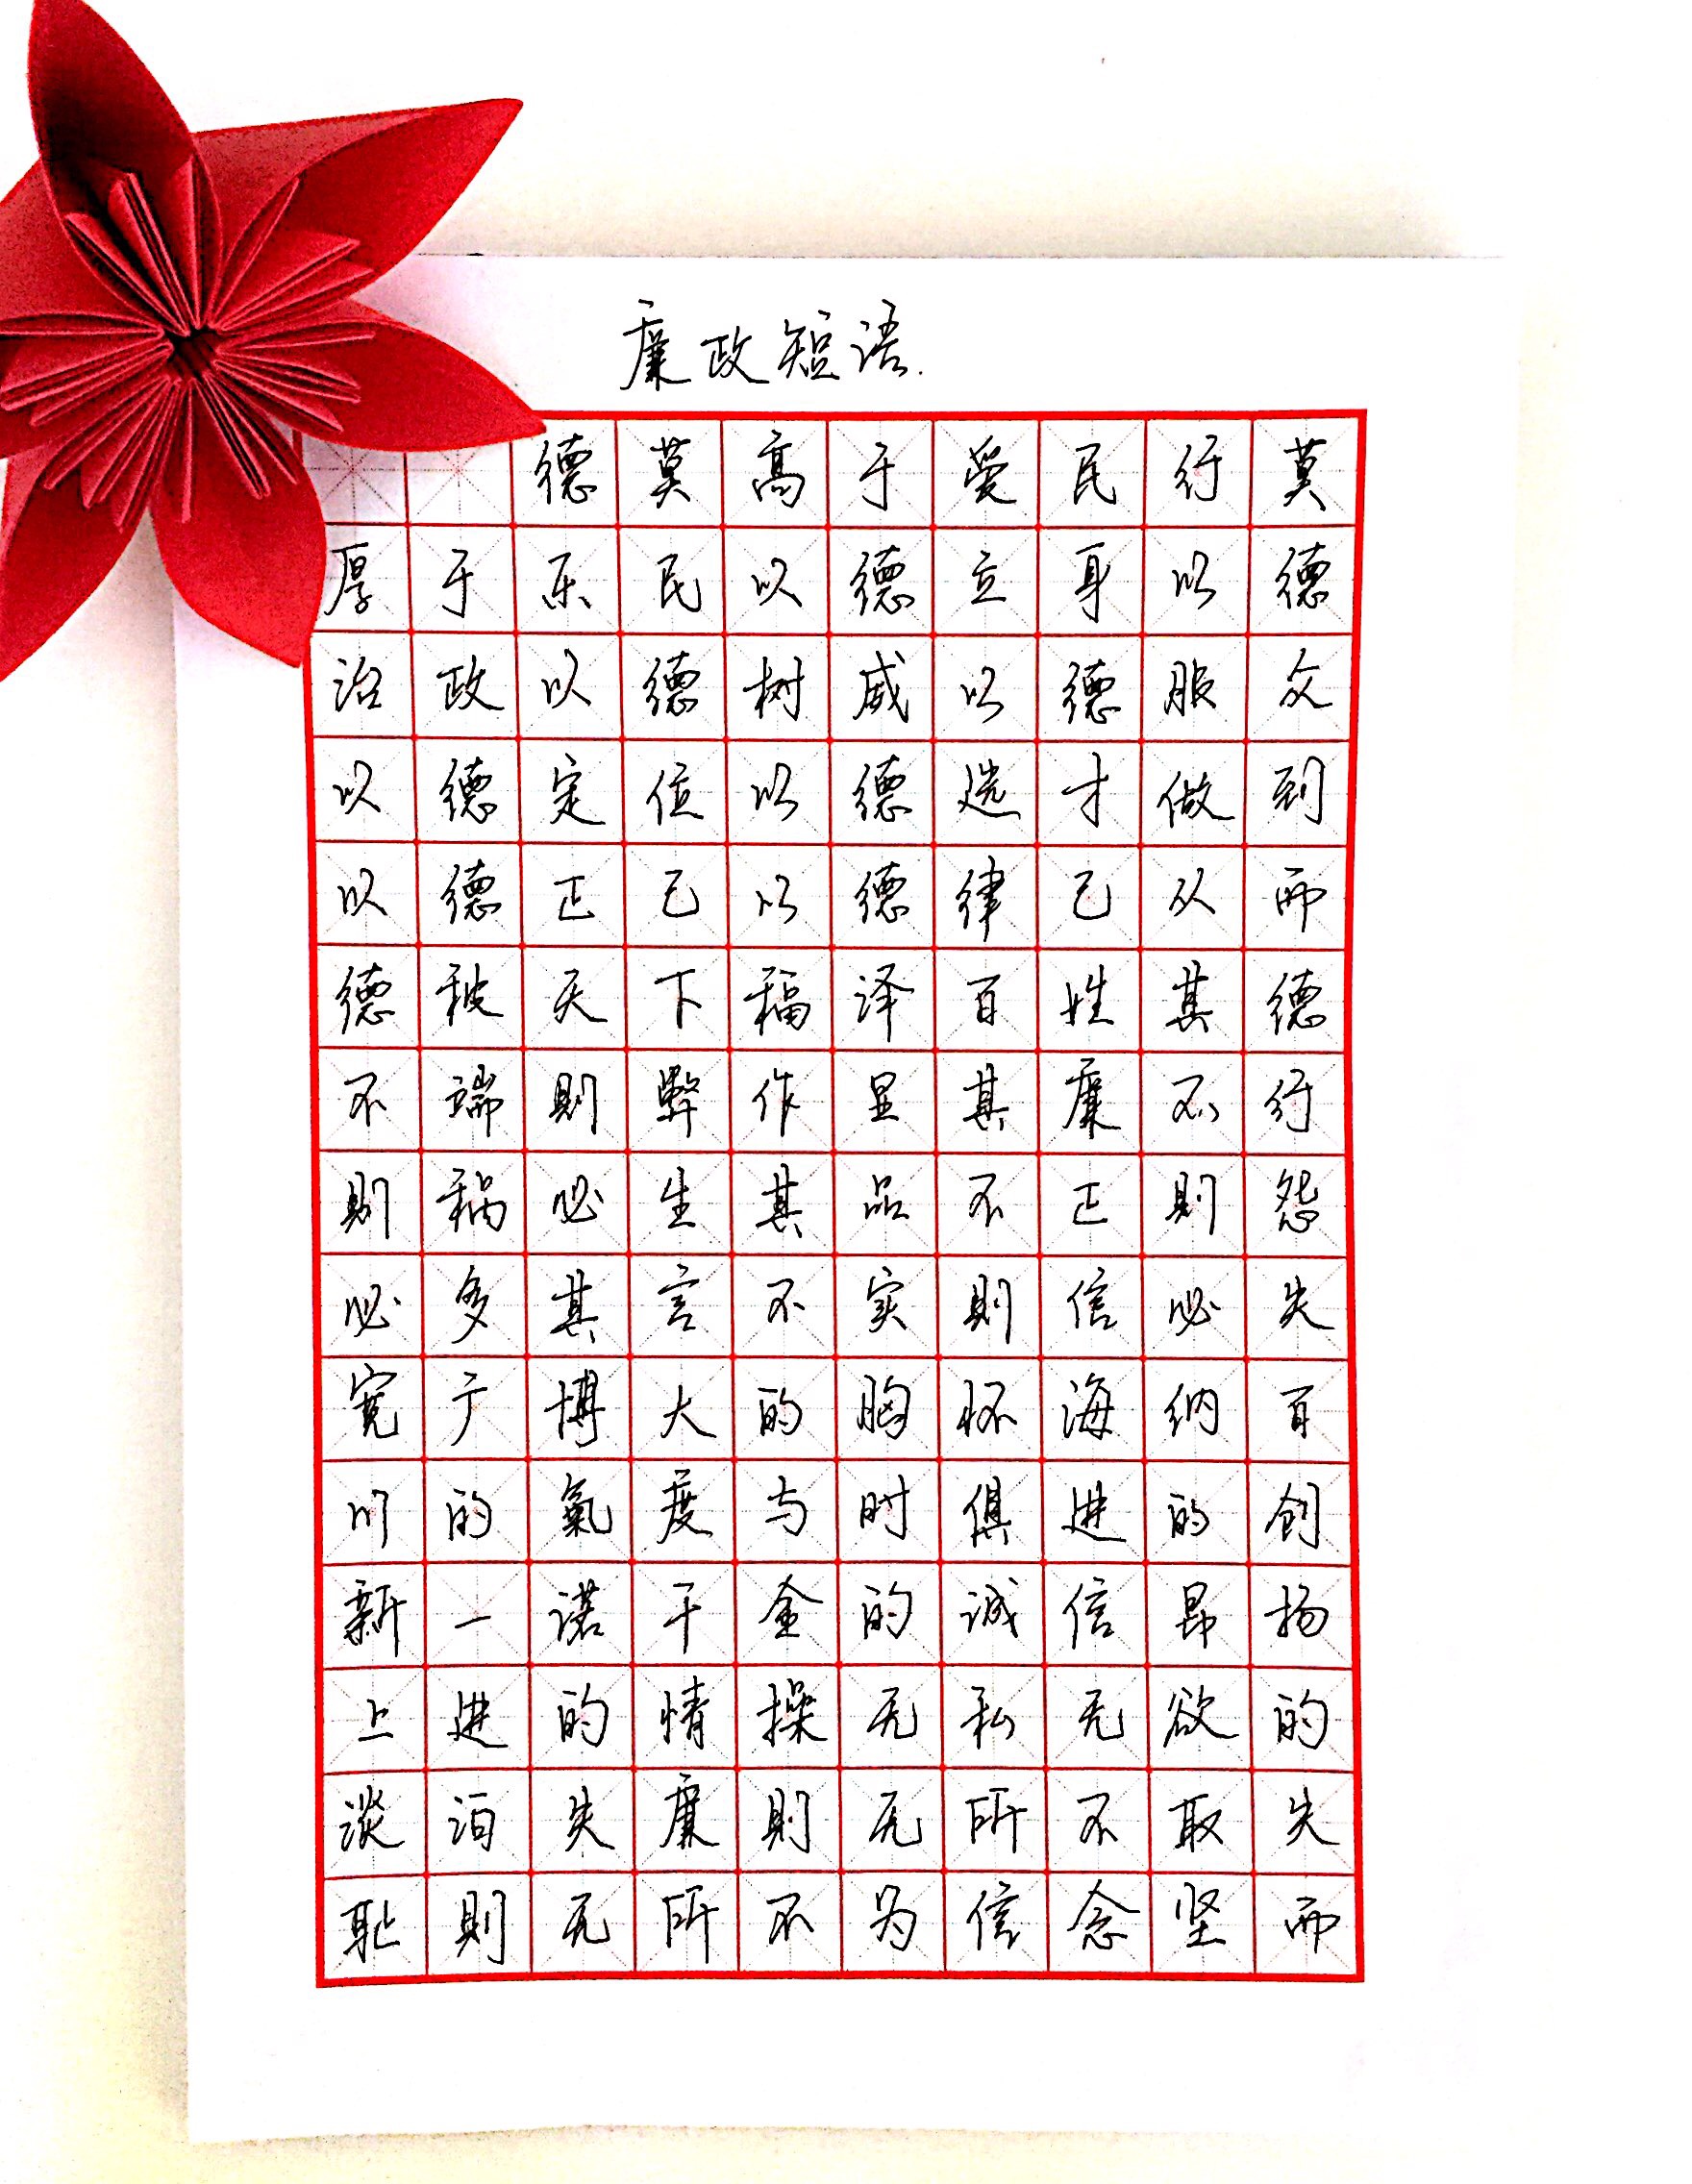 廉政短语.
德莫高于爱民行莫
厚于乐民以德立身以德
治政以德树威以德服众
以德定位以德选才做到
以德正己以德律己从而
德被天下福泽百姓其德
不端则弊作显其廉不行
则祸必生其品不正则怨
必多其言不实则信必失
宽广博大的胸怀海纳百
川的氣度与时俱进的创
新一诺千金的诚信昂扬
上进的情操无私无欲的
淡泊失廉则无所不取失
耻则无所不为信念坚而